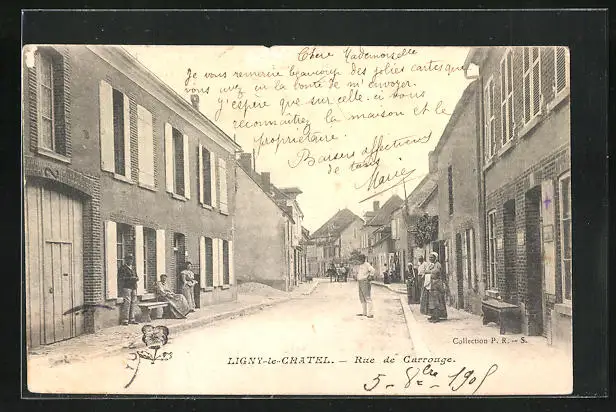 Chère Mademoiselle
Je vous remercie beaucoup des jolies cartes que
vous avez eu la bonté de m'envoyer.
J'espère que sur celle-ci vous
reconnaîtrez la maison et le
propriétaire.
Baisers affectueux
de tous
Marie
Collection P. R. - S.
LIGNY-le-CHATEL. — Rue de Carrouge.
5-8bre 1905